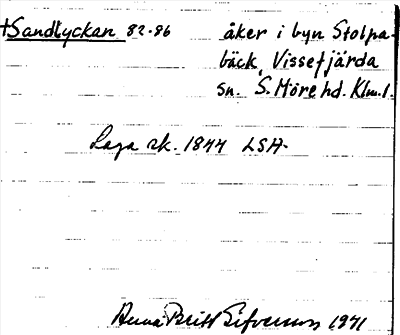 +Sandlyckan 82-86 åker i byn Stolpa-
bäck, Vissefjärda
sn. S. Möre hd. Klm. l.
Laga sk. 1844 LSA-
Anna Britt Sifverson 1971